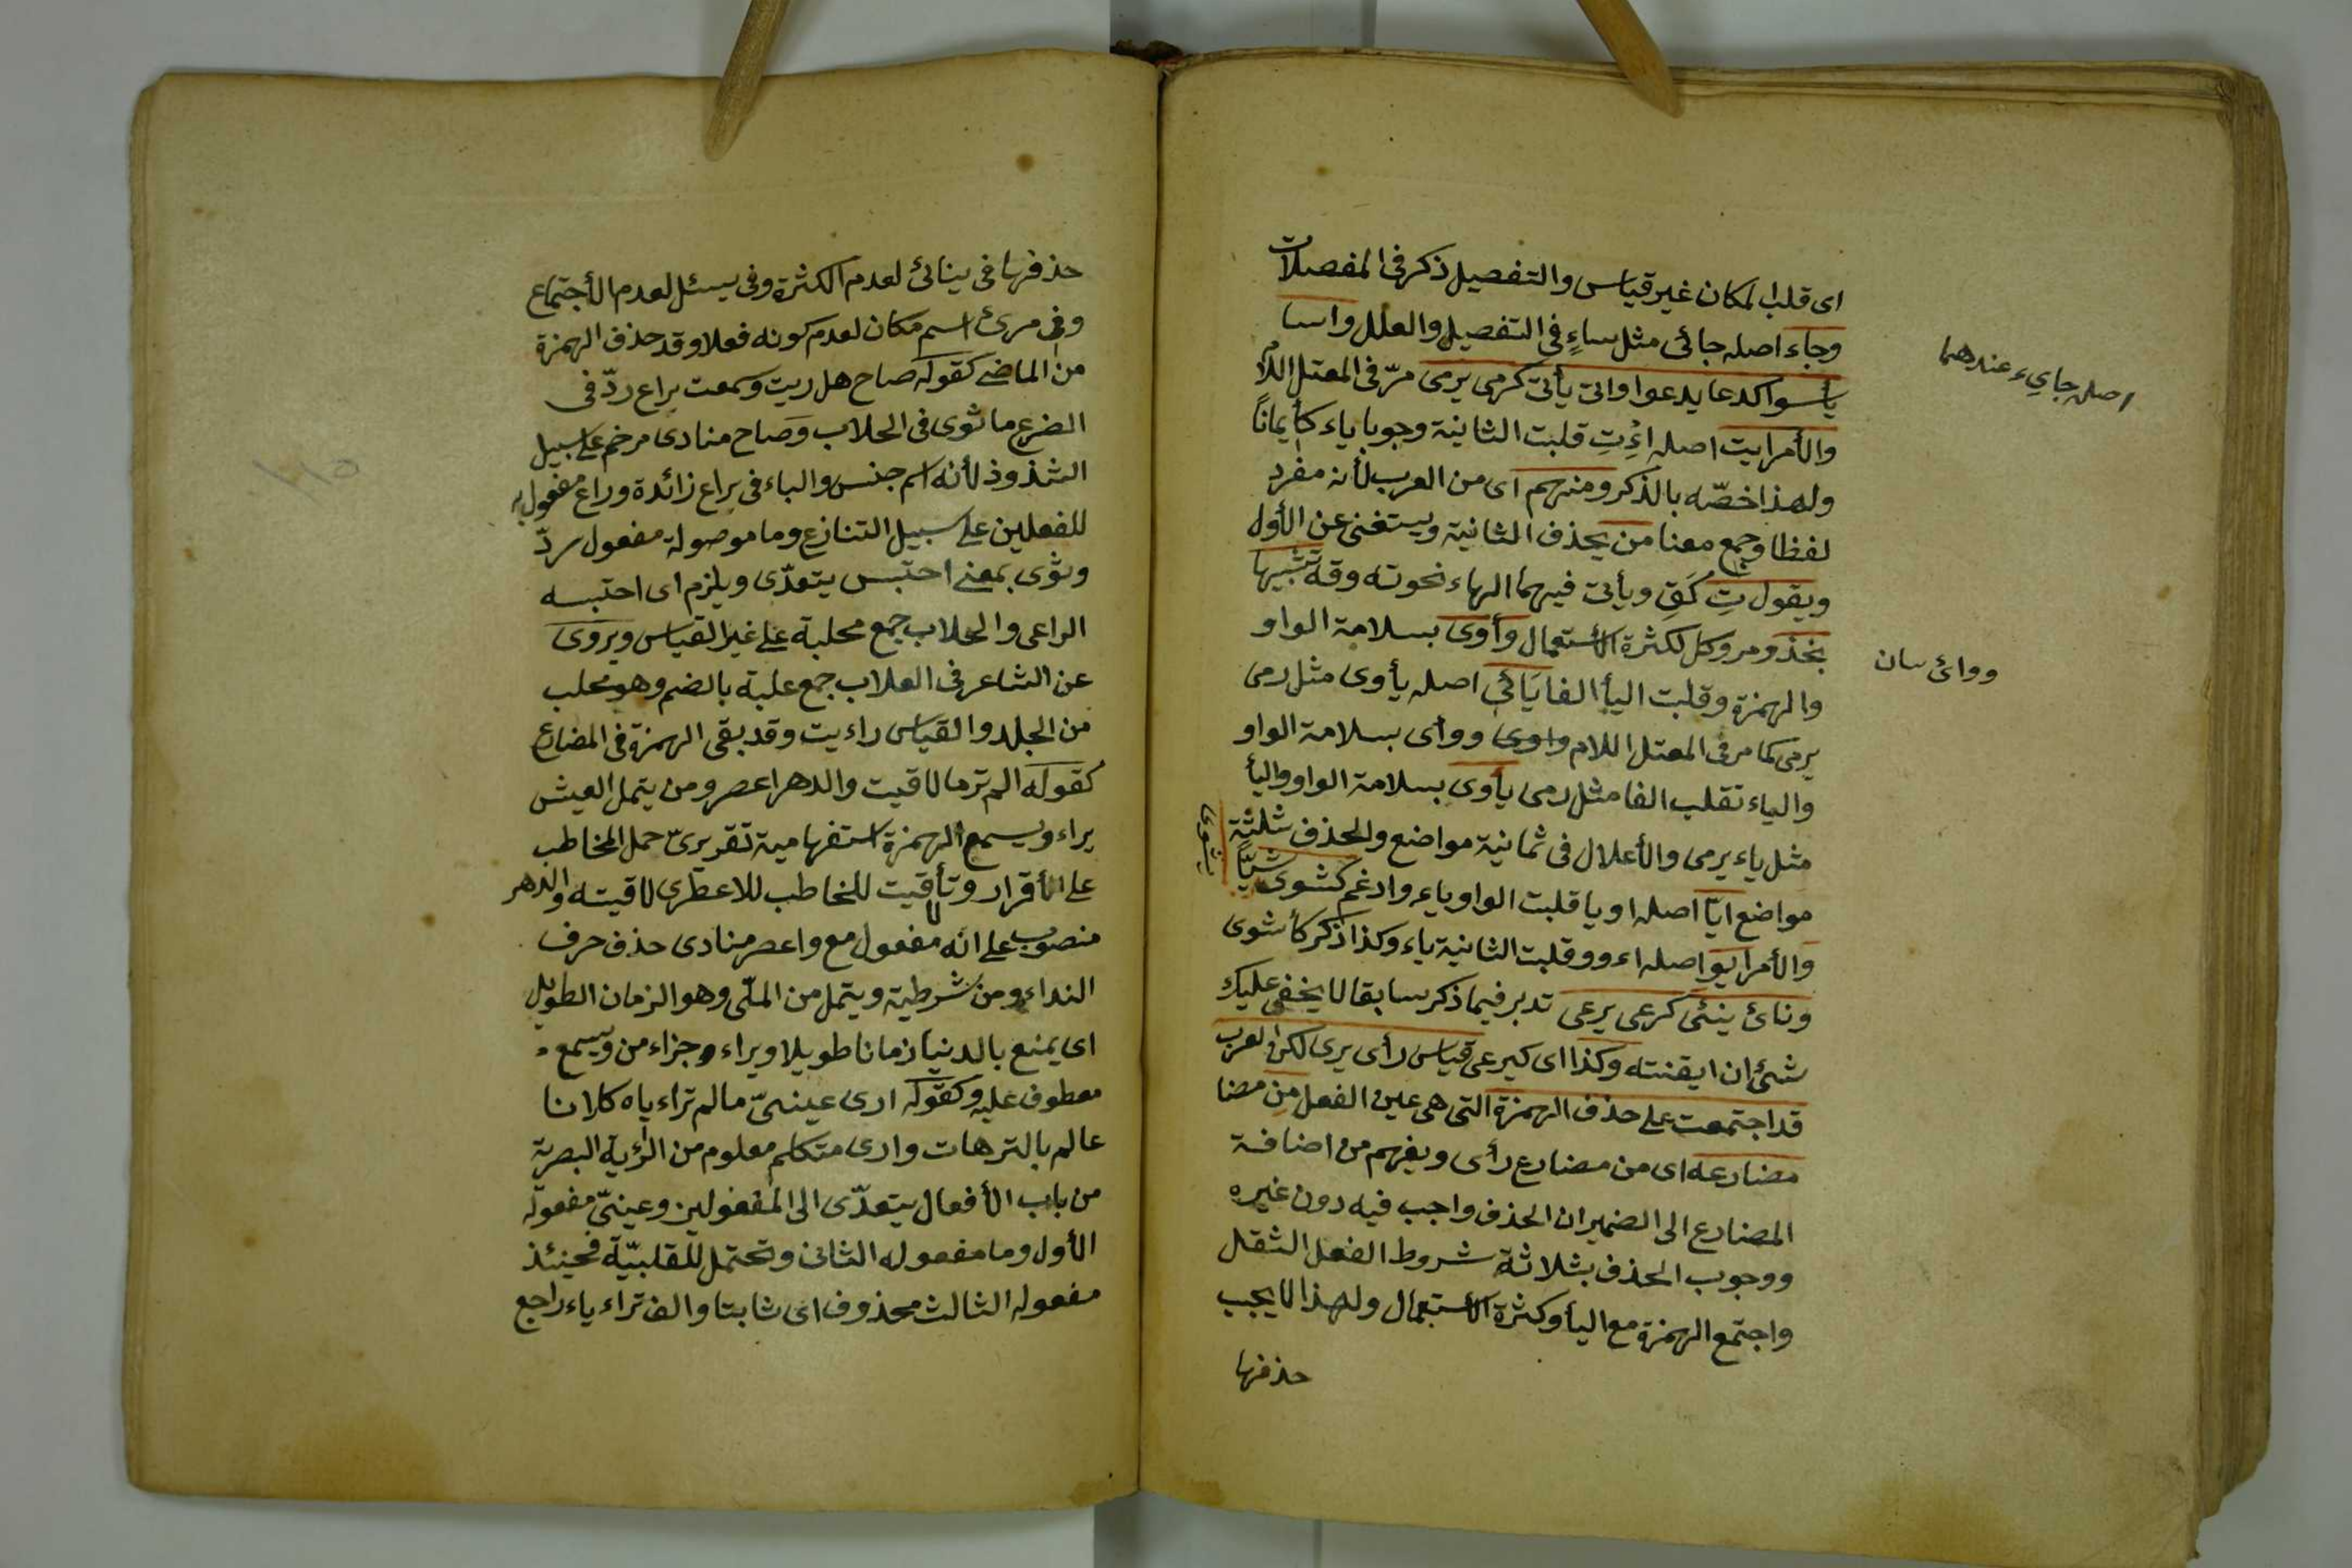 اى قلب المكان غير قياس والتفصيل ذكر فى المفصلات
وجاء اصله جائى مثل ساءٍ فى التفصيل والعلل واسا
يأسوا كدعا يدعوا واتى يأتى كرمى يرمى مرّ فى المعتل اللام
والأمر ايت اصله اءْتِ قلبت الثانية وجوبا ياء كأيمانًا
ولهذا خصّه بالذكر ومنهم اى من العرب لأنه مفرد
لفظا وجمع معنا من يحذف الثانية ويستغنى عن الأول
ويقول تِ كَقِ ويأتى فيهما الهاء نحو ته وقه تشبيها
بخذ ومر وكل لكثرة الأستعمال وأوى بسلامة الواو
والهمزة وقلبت اليأ الفا يَائى اصله يأوى مثل رمى
يرمى كما مر فى المعتل اللام واوى وواى بسلامة الواو
والياء تقلب الفا مثل رمى يأوى بسلامة الواو واليأ
مثل ياء يرمى والأعلال فى ثمانية مواضع والحذف ثلثة
مواضع ايّا اصله اويا قلبت الواو ياء وادغم كشوى شيّا
يشوى
والأمر ايو اصله اءوو قلبت الثانية ياء وكذا ذكر كأشوى
ونائ ينئى كرعى يرعى تدبر فيما ذكر سابقا لا يخفى عليك
شئ ان ايقنته وكذا اى كيرعى قياس رأى يرى لكن العرب
قد اجتمعت على حذف الهمزة التى هى عين الفعل من مضا
مضارعه اى من مضارع رأى ويفهم من اضافة
المضارع الى الضمير ان الحذف واجب فيه دون غيره
ووجوب الحذف بثلاثة شروط الفعل الثقل
واجتمع الهمزة مع اليأ وكثرة الأستعمال ولهذا لا يجب
حذفها
اصله جايء عندهما
ووائ سان
حذفها فى ينائ لعدم الكثرة وفى يسئل لعدم الأجتماع
وفى مرئ اسم مكان لعدم كونه فعلا وقد حذف الهمزة
من الماضى كقوله صاح هل ريت وسمعت براع ردّ فى
الضرع ما ثوى فى الحلاب وصاح منادى مرخم على سبيل
الشذوذ لأنه اسم جنس والباء فى براع زائدة وراع مفعول به
للفعلين على سبيل التنازع وما موصولة مفعول ردّ
وثوى بمعنى احتبس يتعدّى ويلزم اى احتبسه
الراعى والحلاب جمع محلبة على غير القياس ويروى
عن الشاعر فى العلاب جمع علبة بالضم وهو محلب
من الجلد والقياس راءيت وقد بقى الهمزة فى المضارع
كقوله الم تر ما لاقيت والدهر اعصر ومن يتمل العيش
يراء ويسمع الهمزة استفهامية تقريرىّ حمل المخاطب
على الأقرار وتألاقيت للخاطب للاعطرى لاقيته والدهر
منصوب على انه مفعول مع واعصر منادى حذف حرف
النداء ومن شرطية ويتمل من الملّى وهو الزمان الطويل
اى يمنع بالدنيا زمانا طويلا ويراء جزاء من ويسمع
معطوف عليه وكقوله ارى عينىّ ما لم تراءياه كلانا
عالم بالترهات وارى متكلم معلوم من الرؤية البصرية
من باب الأفعال يتعدّى الى المفعولين وعينىّ مفعوله
الأول وما مفعوله الثانى وتحتمل للقلبيّة فحينئذ
مفعوله الثالث محذوف اى ثابتا والف تراءياء راجع
١١٥